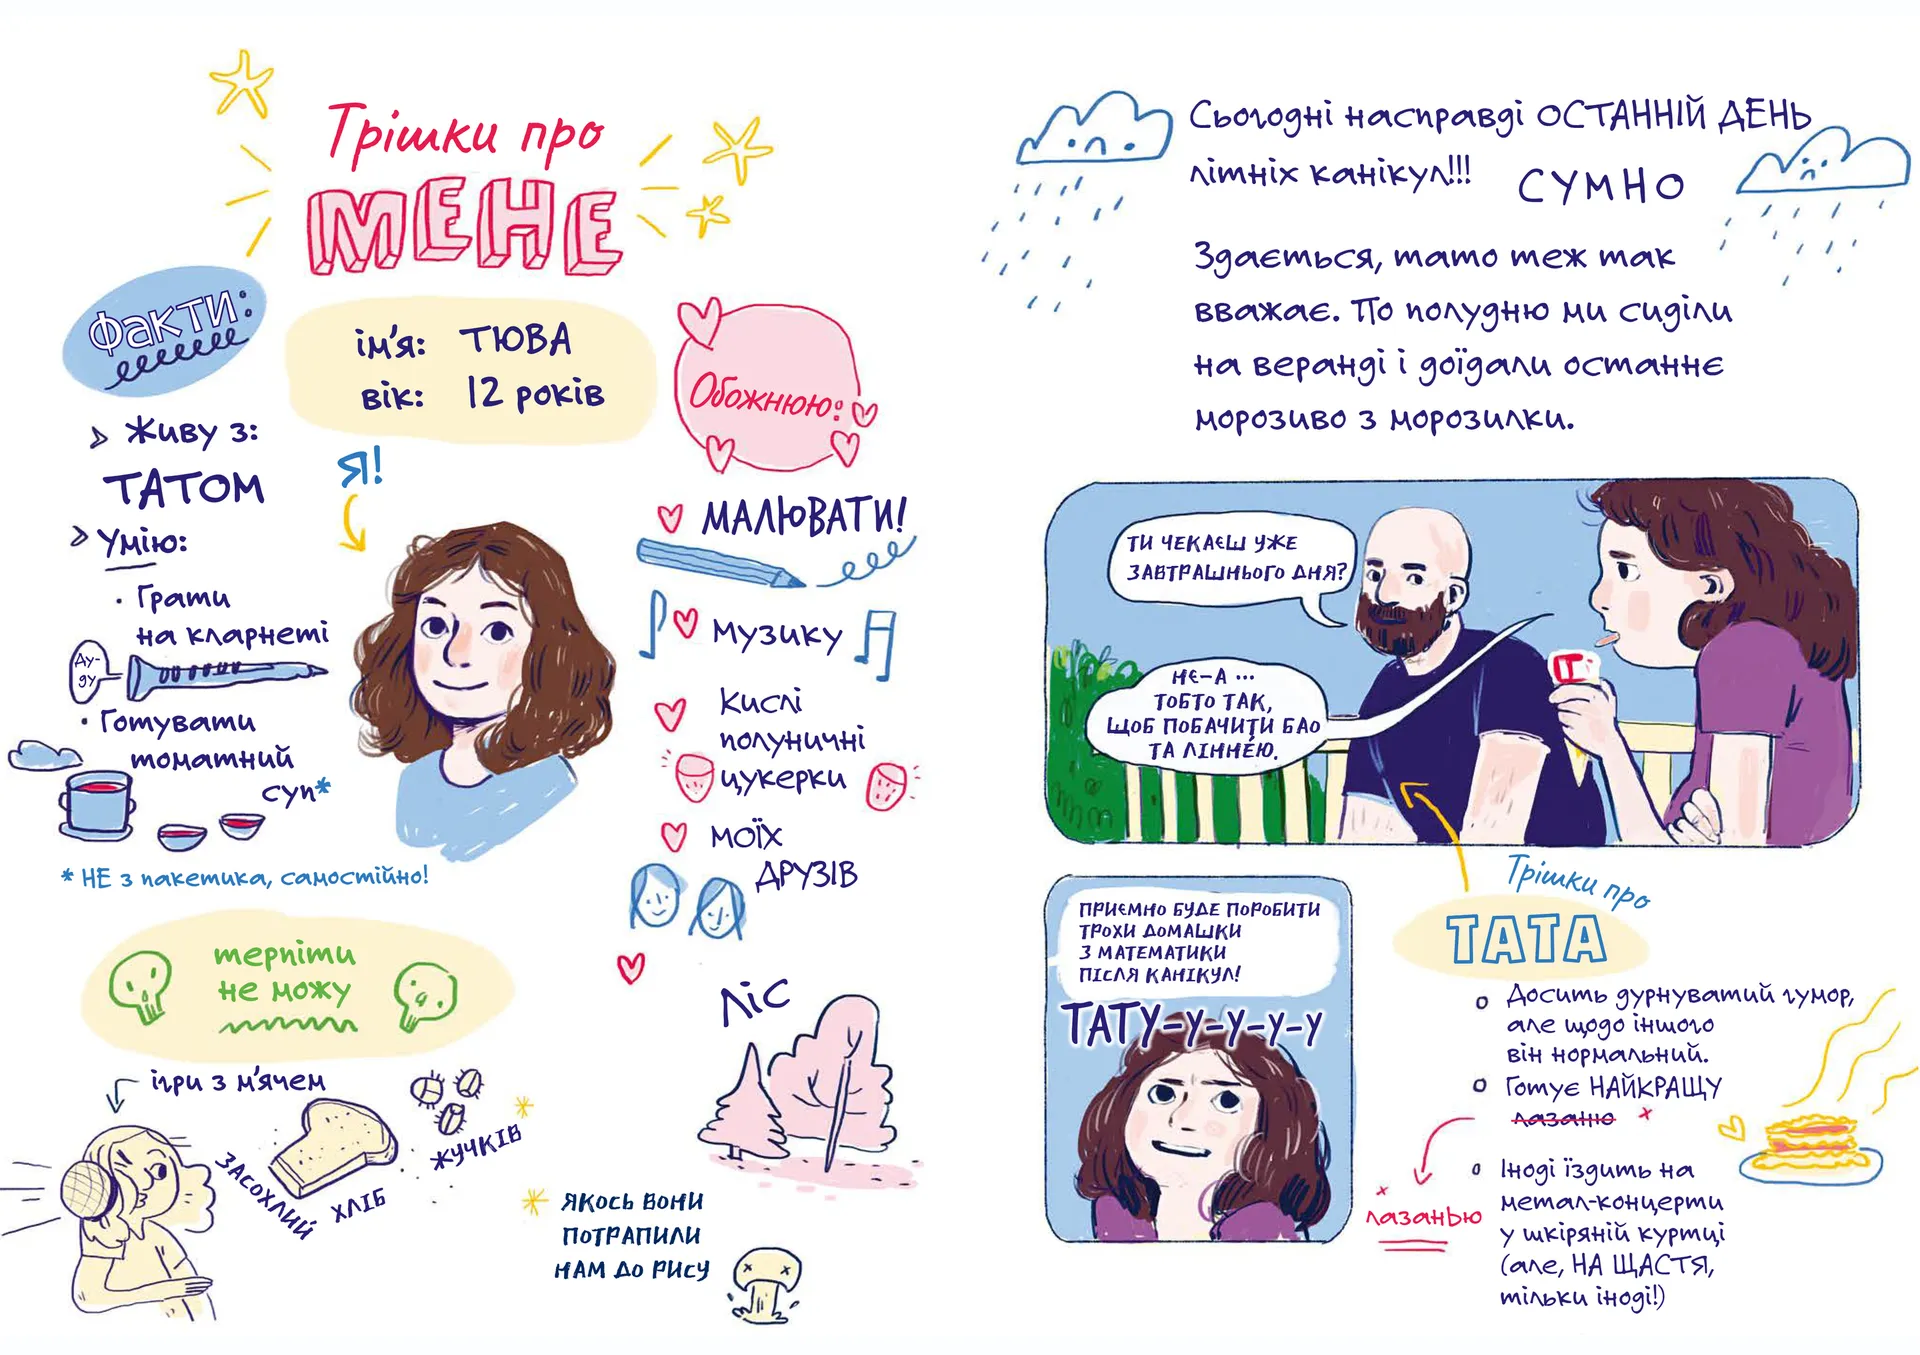 Трішки про
МЕНЕ
Факти:
ім'я: ТЮВА
вік: 12 років
Живу з:
ТАТОМ
Умію:
· Грати
на кларнеті
Ду-
ду
· Готувати
томатний
суп*
* НЕ з пакетика, самостійно!
Я!
Обожнюю:
МАЛЮВАТИ!
музику
Кислі
полуничні
цукерки
моїх
ДРУЗІВ
ліс
терпіти
не можу
ігри з м'ячем
ЗАСОХЛИЙ
ХЛІБ
ЖУЧКІВ
ЯКОСЬ ВОНИ
ПОТРАПИЛИ
НАМ ДО РИСУ
Сьогодні насправді ОСТАННІЙ ДЕНЬ
літніх канікул!!! СУМНО
Здається, тато теж так
вважає. По полудню ми сиділи
на веранді і доїдали останнє
морозиво з морозилки.
ТИ ЧЕКАЄШ УЖЕ
ЗАВТРАШНЬОГО ДНЯ?
НЄ-А ...
ТОБТО ТАК,
ЩОБ ПОБАЧИТИ БАО
ТА ЛІННЕ́Ю.
ПРИЄМНО БУДЕ ПОРОБИТИ
ТРОХИ ДОМАШКИ
З МАТЕМАТИКИ
ПІСЛЯ КАНІКУЛ!
ТАТУ-У-У-У-У
Трішки про
ТАТА
Досить дурнуватий гумор,
але щодо іншого
він нормальний.
Готує НАЙКРАЩУ
лазаню
лазанЬю
Іноді їздить на
метал-концерти
у шкіряній куртці
(але, НА ЩАСТЯ,
тільки іноді!)